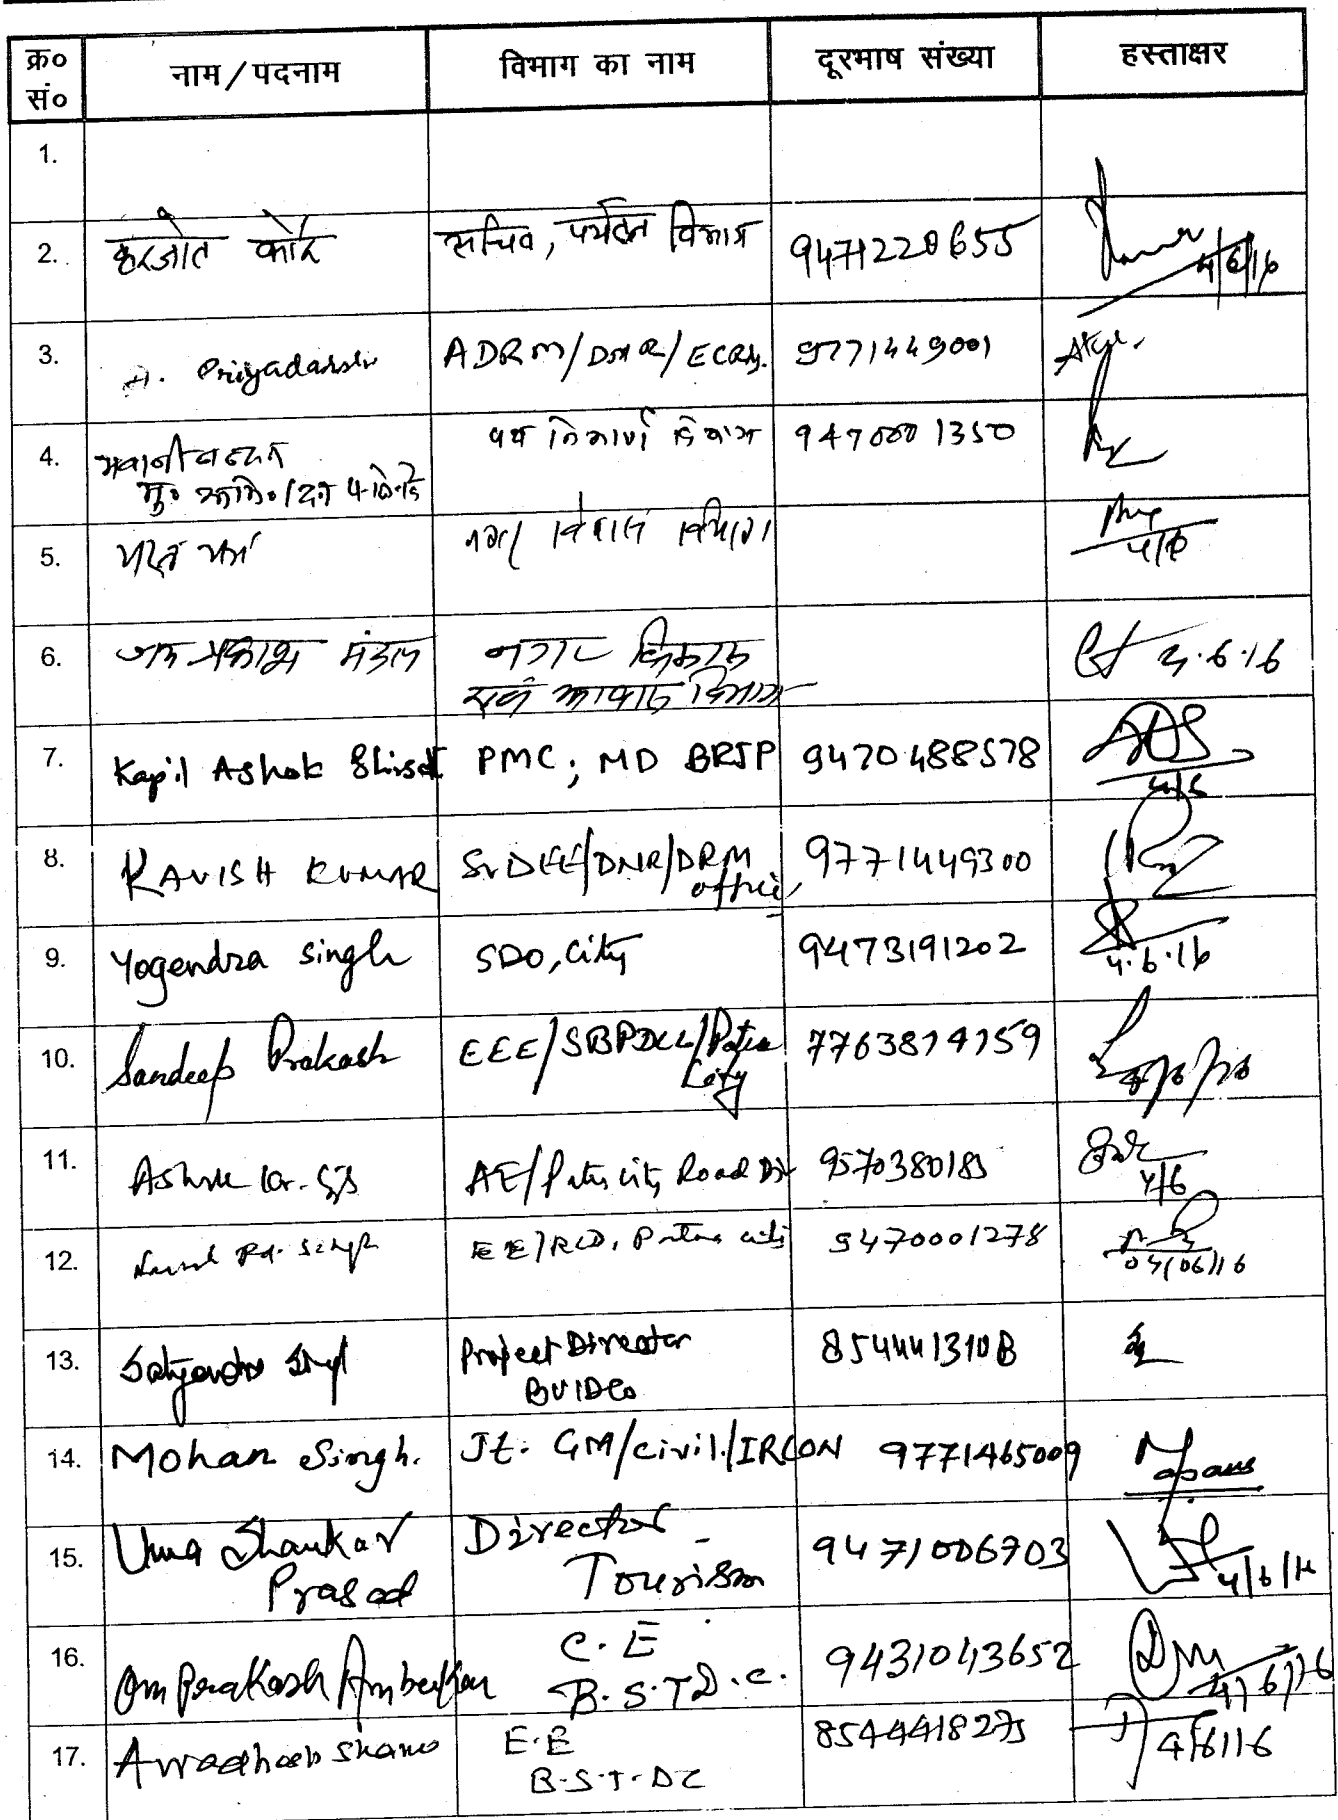 क्र० सं० नाम/पदनाम विभाग का नाम दूरभाष संख्या हस्ताक्षर
1.
2. हरजोत कौर सचिव, पर्यटन विभाग 9471220655 4/6/16
3. Priyadarshi ADRM/DNR/ECRly. 9771449001
4. पथ निर्माण विभाग 9470001350
5. नगर विकास विभाग
6. जय प्रकाश मंडल नगर विकास 4.6.16
एवं आवास विभाग
7. Kapil Ashok Shirsat PMC, MD BRJP 9470488578
8. RAVISH KUMAR Sr DEE/DNR/DRM office, 9771449300
9. Yogendra Singh SDO, City 9473191202 4.6.16
10. Sandeep Prakash EEE/SBPDCL/Patna City
11. AE/Patna City Road Div 9570380183 4/6
12. EE/RCD, Patna City 9470001278 04/06/16
13. Satyendra Singh Project Director 8544413108
BUIDCo
14. Mohan Singh. Jt. GM/civil./IRCON 9771465009
15. Uma Shankar Director 9471006703 4/6/16
Prasad Tourism
16. Om Prakash Ambedkar C.E 9431043652 4/6/16
B.S.T.D.C.
17. Awadhesh E.E 8544418275 4/6/16
B.S.T.DC